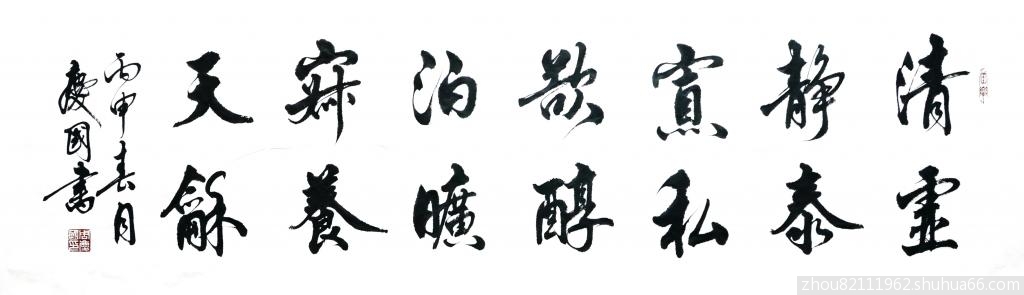 清虛
静泰
寡私
欲醇
泊曠
寂養
天龢
丙申春月
慶國書
zhou82111962.shuhua66.com